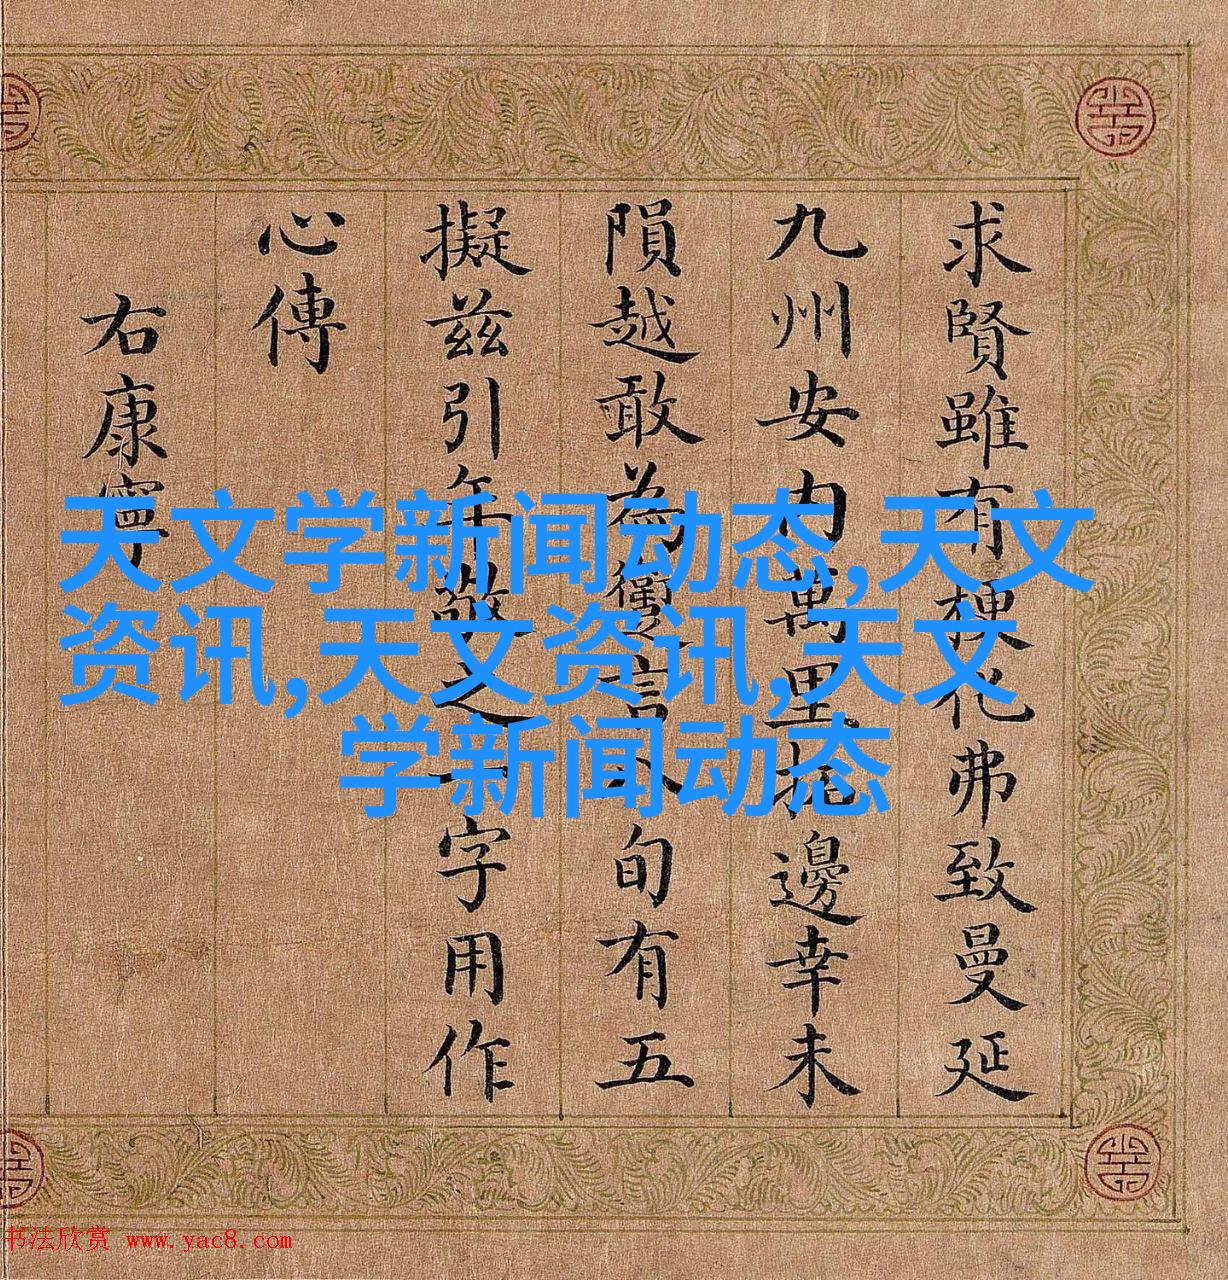 求賢雖有梗化弗致曼延
九州安内萬里邊幸未
隕越敢為言八旬有五
擬兹引年敬之一字用作
心傳
右康寧
天文学新闻动态,天文
资讯,天文资讯,天文
学新闻动态
书法欣赏 www.yac8.com